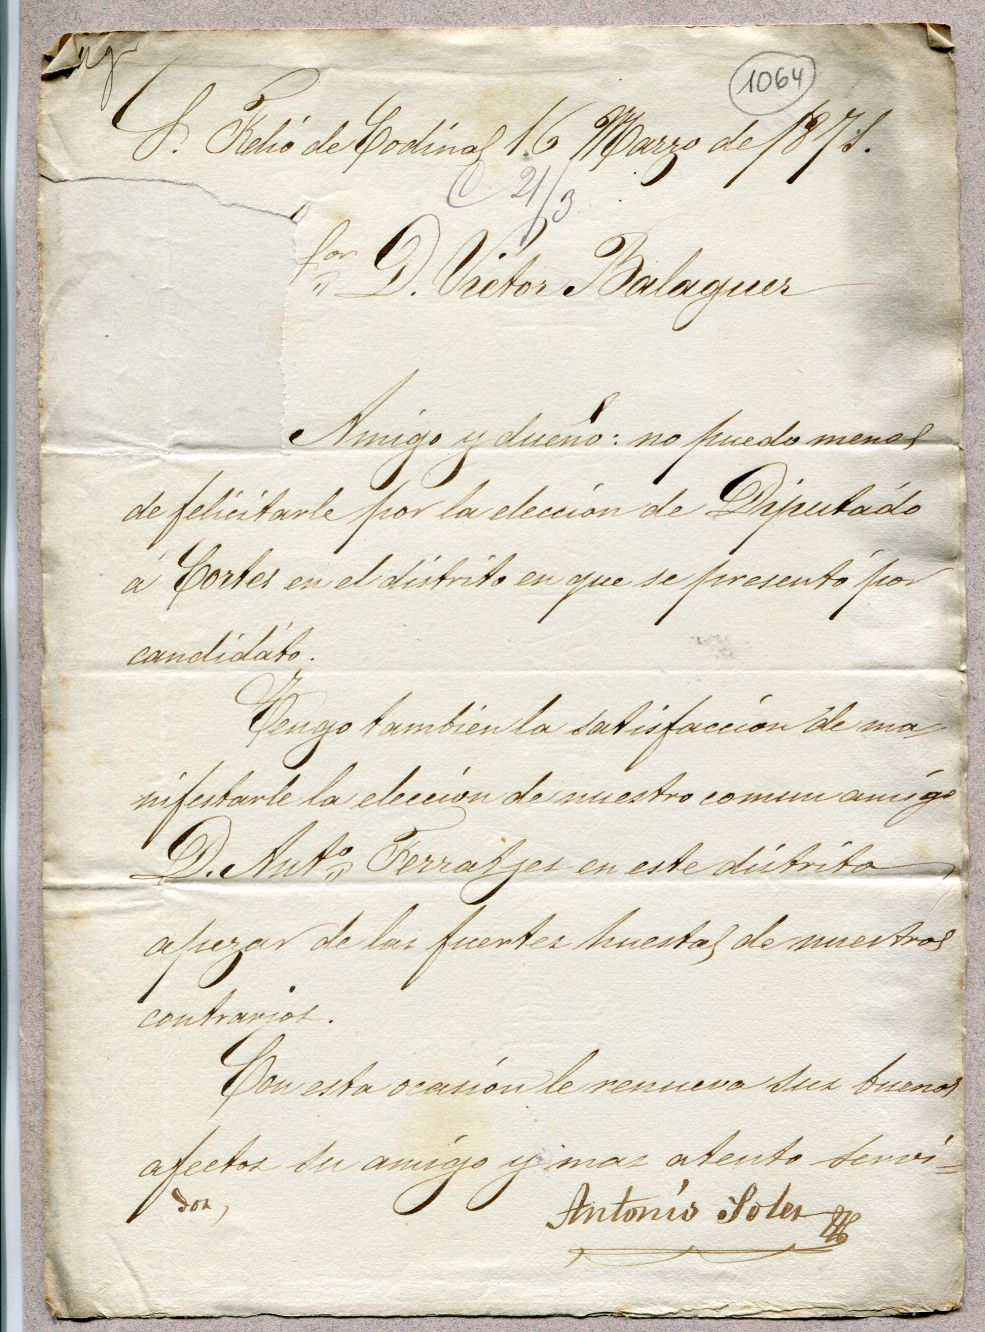 1064
S. Felió de Codinas 16 Marzo de 1871.
C 21/3
Sor D. Victor Balaguer
Amigo y dueño: no puedo menos
de felicitarle por la elección de Diputádo
á Cortes en el distrito en que se presentó por
candidáto.
Tengo tambien la satisfacción de ma
nifestarle la elección de nuestro comun amigo
D. Anto. Ferratjes en este distrito
apezar de las fuertes huestas de nuestros
contrarios.
Con esta ocasión le renueva sus buenos
afectos su amigo y mas atento servi=
dor,
Antonio Soler